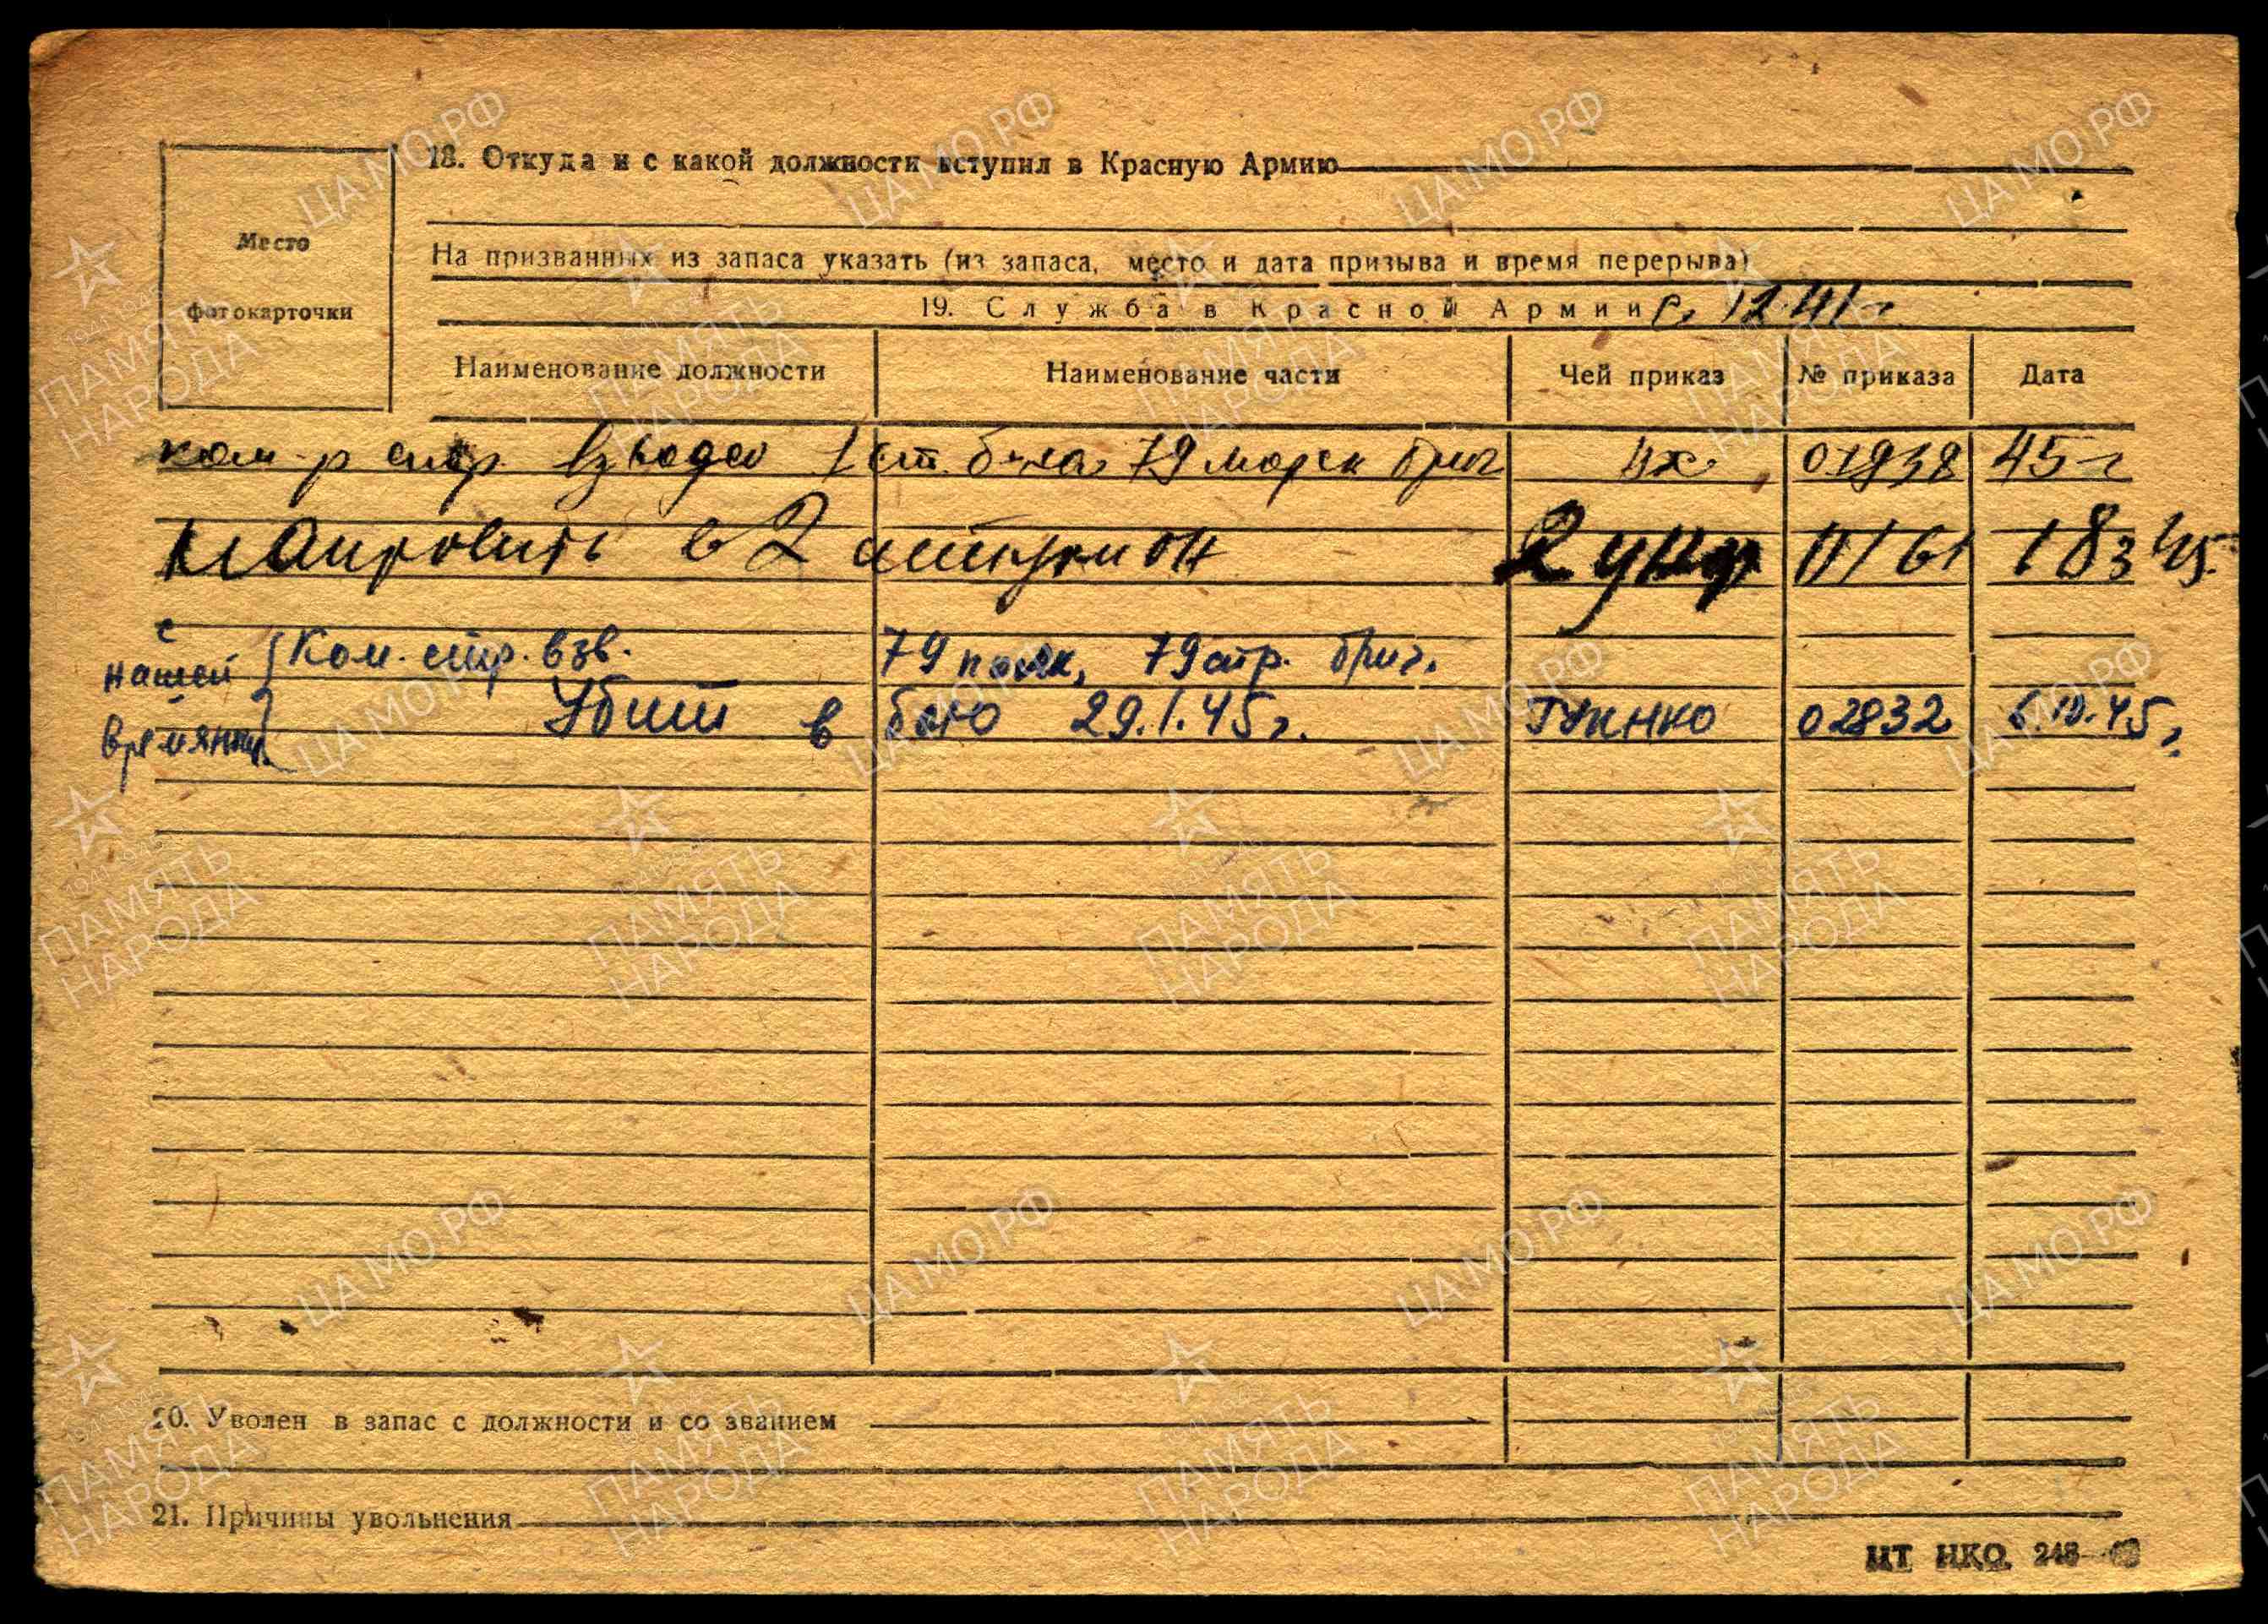 18. Откуда и с какой должности вступил в Красную Армию
Место
фотокарточки
На призванных из запаса указать (из запаса, место и дата призыва и время перерыва)
19. Служба в Красной Армии с 12.41 г
Наименование должности Наименование части Чей приказ № приказа Дата
ком-р стр. взвода 1 ст. б-на 79 морск бриг 45 г
в 2 0161 18 3 45.
с нашей времянки Ком. стр. взв. 79 полк, 79 стр. бриг.
Убит в бою 29.1.45 г. ГУКНКО 02832 6.10.45 г.
20. Уволен в запас с должности и со званием
21. Причины увольнения
ЦТ НКО. 248
ЦАМО.РФ
1941-1945
ПАМЯТЬ НАРОДА